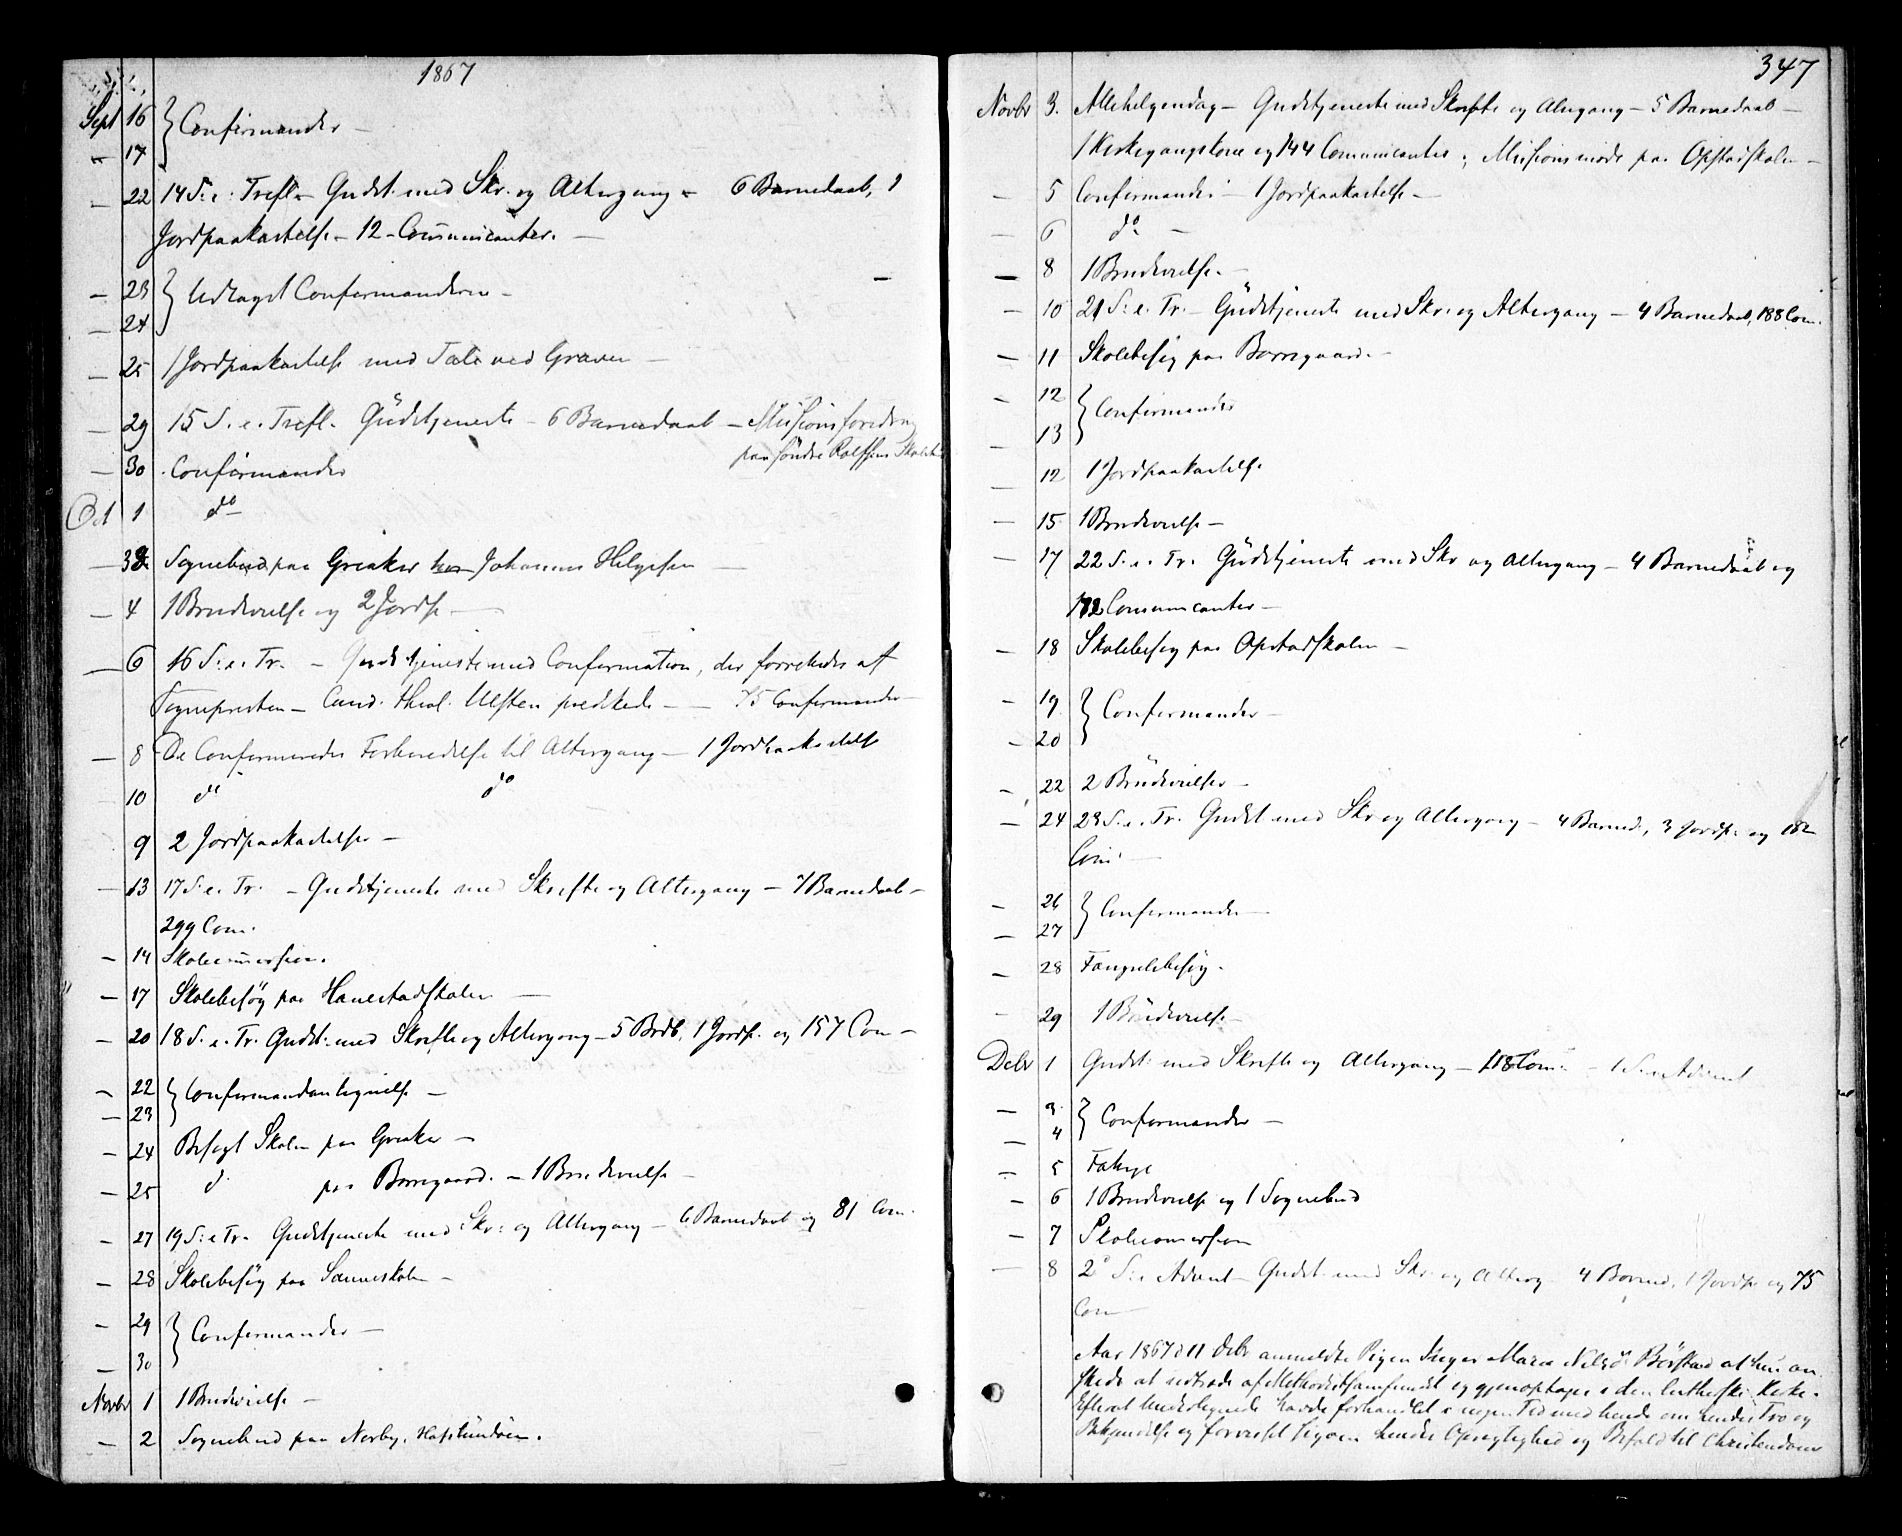 1867
Sept 16 } Confirmander –
– 17
– 22 14 S. e. Trefl. – Gudst. med Skr. og Altergang – 6 Barnedaab, 1
Jordpaakastelse – 12 Communicanter. –
– 23 } Udtaget Confirmanderne –
– 24
– 25 1 Jordpaakastelse med Tale ved Graven –
– 29 15 S. e. Trefl. Gudstjeneste – 6 Barnedaab – Missionsforedrag
paa søndre
– 30 Confirmander
Oct 1 do
– 3 Sognebud paa Greaker hos Johannes Helgesen –
– 4 1 Brudevielse og 2 Jordp. –
– 6 16 S. e. Tr. – Gudstjeneste med Confirmation, der forrettedes af
Sognepresten – Cand. theol. prædikede – 75 Confirmander
– 8 De Confirmeredes Forberedelse til Altergang – 1 Jordpaakastelse
10 do do
9 2 Jordpaakastelser –
– 13 17 S. e. Tr. – Gudstjeneste med Skrifte og Altergang – 7 Barnedaab –
299 Com.
– 14 Skolecommission.
– 17 Skolebesøg paa Hauestadskolen –
– 20 18 S. e. Tr. Gudst. med Skrifte og Altergang – 5 Brdb. 1 Jordp. og 157 Com –
– 22 } Confirmandantegnelse –
– 23
– 24 Besøgt Skolen paa Greaker –
– 25 do paa Borregaard. – 1 Brudevielse –
– 27 19 S. e. Tr. Gudstjeneste med Skr. og Altergang – 6 Barnedaab og 81 Com.
– 28 Skolebesøg paa Sanneskolen –
– 29 } Confirmander –
– 30
Novbr 1 1 Brudevielse –
– 2 Sognebud paa Narby, Hafslundsøen.
347
Novbr 3. Allehelgendag – Gudstjeneste med Skrifte og Altergang – 5 Barnedaab –
1 Kirkegangskone og 144 Communicanter; Missionsmøde paa Opstadskolen –
– 5 Confirmander – 1 Jordpaakastelse –
– 6 do –
– 8 1 Brudevielse. –
– 10 21 S. e. Tr. – Gudstjeneste med Skr. og Altergang – 4 Barnedaab, 188 Com.
– 11 Skolebesøg paa Borregaard. –
– 12 } Confirmander
– 13
– 12 1 Jordpaakastelse
– 15 1 Brudevielse –
– 17 22 S. e. Tr. Gudstjeneste med Skr og Altergang – 4 Barnedaab og
172 Communicanter –
– 18 Skolebesøg paa Opstadskolen –
– 19 } Confirmander –
– 20
– 22 2 Brudevielser –
– 24 23 S. e. Tr. Gudst. med Skr og Altergang – 4 Barned., 3 Jordp. og 182
Com. –
– 26 } Confirmander –
– 27
– 28 Fængselsbesøg.
– 29 1 Brudevielse –
Decbr 1 Gudst. med Skrifte og Altergang – 118 Com. – 1 S. i Advent
– 3 } Confirmander –
– 4
– 5
– 6 1 Brudevielse og 1 Sognebud
– 7 Skolecommission
– 8 2 S. i Advent – Gudst. med Skr. og Alterg – 4 Barned., 1 Jordp. og 75
Com –
Aar 1867 d 11 Decbr anmeldte Pigen Inger Marie Nilsd. Børstad at hun ønskede
at udtræde af Methodistsamfundet og gjenoptages i den lutherske Kirke.
Efterat Undertegnede havde forhandlet i nogen Tid med hende om hendes Tro og
Bekjendelse og forvisset sig om hendes Oprigtighed og til Christendoms